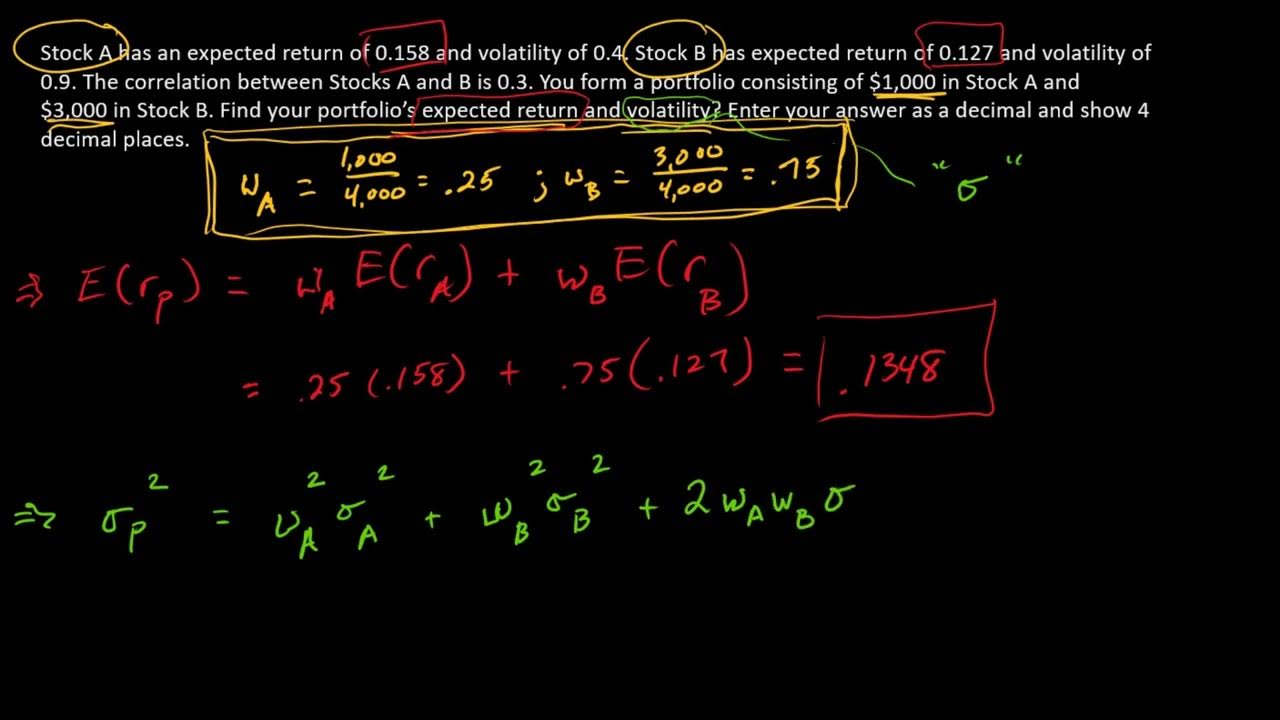 Stock A has an expected return of 0.158 and volatility of 0.4. Stock B has expected return of 0.127 and volatility of
0.9. The correlation between Stocks A and B is 0.3. You form a portfolio consisting of $1,000 in Stock A and
$3,000 in Stock B. Find your portfolio's expected return and volatility? Enter your answer as a decimal and show 4
decimal places.
w_A = 1,000/4,000 = .25 ; w_B = 3,000/4,000 = .75
"σ"
⇒ E(r_p) = w_A E(r_A) + w_B E(r_B)
= .25(.158) + .75(.127) = .1348
⇒ σ_p² = w_A² σ_A² + w_B² σ_B² + 2 w_A w_B σ